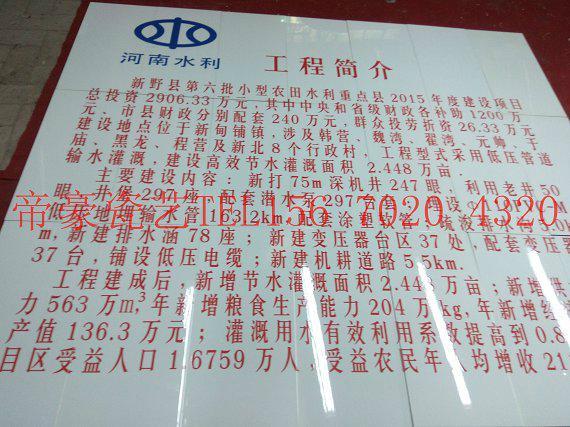 河南水利
工程简介
新野县第六批小型农田水利重点县2015年度建设项目
总投资2906.33万元;其中中央和省级财政各补助1200万
元、市县财政分别配套240万元,群众投劳折资26.33万元。
建设地点位于新甸铺镇,涉及韩营、魏湾、翟湾、元帅、于
庙、黑龙、程营及新北8个行政村,工程型式采用低压管道
输水灌溉,建设高效节水灌溉面积2.448万亩。
主要建设内容:新打75m深机井247眼,利用老井50
眼,井堡297座,配套潜水泵297台
低压地埋输水管163.2km,配套涂塑软管;疏浚排水沟
m,新建排水涵78座;新建变压器台区37处,配套变压器
37台,铺设低压电缆;新建机耕道路5.5km.
工程建成后,新增节水灌溉面积2.448万亩;新增供水
力563万m,³年新增粮食生产能力204万kg,年新增经
产值136.3万元;灌溉用水有效利用系数提高到0.8
目区受益人口1.6759万人,受益农民年人均增收21
帝豪奇艺TEL15617020 4320